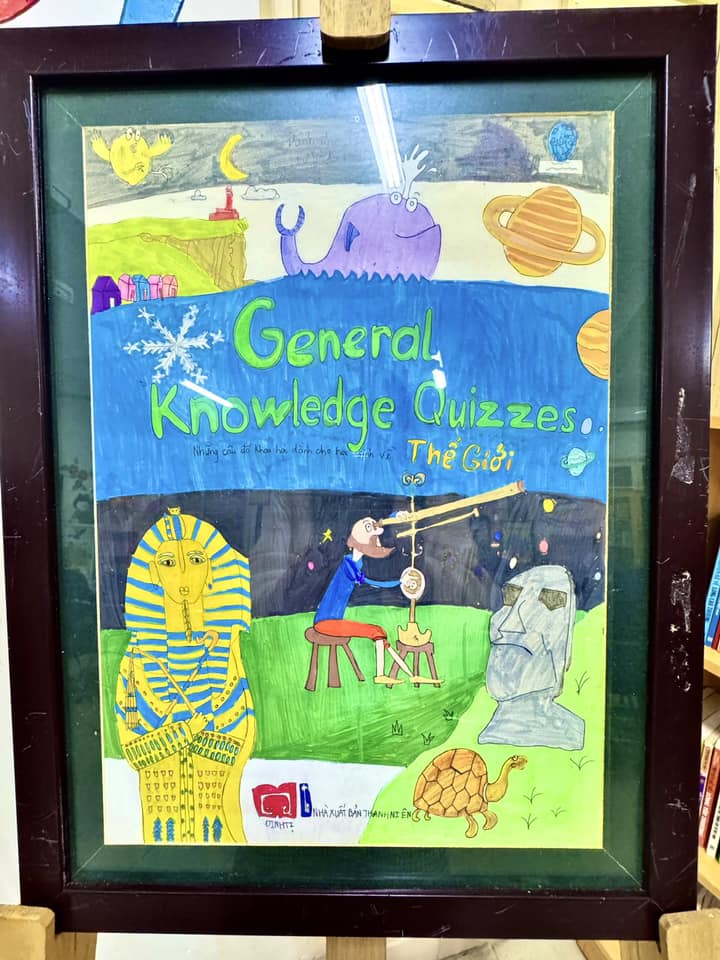 General
Knowledge Quizzes
Những câu đố khoa học dành cho học sinh về Thế Giới
ĐINHTỊ
NHÀ XUẤT BẢN THANH NIÊN